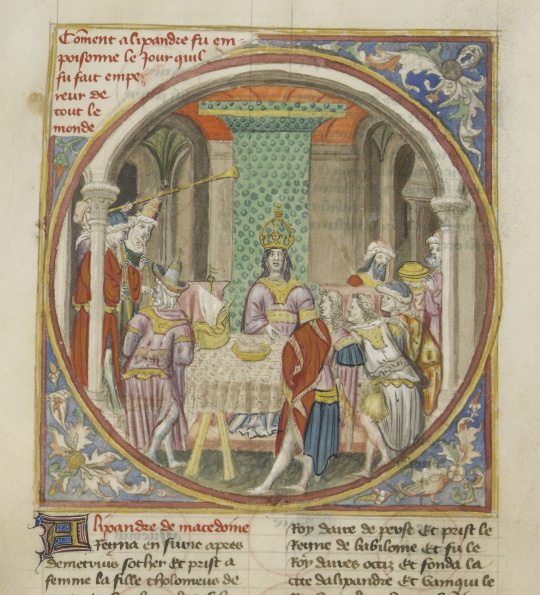 Coment alixandre fu em
poisonne le Jour quil
fu fait empe
reur de
tout le
monde
Alixandre de macedoine
Regna en surie apres
demetrius sother et prist a
femme la fille tholomeus de
Roy daire de perse Et prist le
Regne de babiloine Et fu le
Roy daires occiz Et fonda la
cite dalixandre Et vainqui le